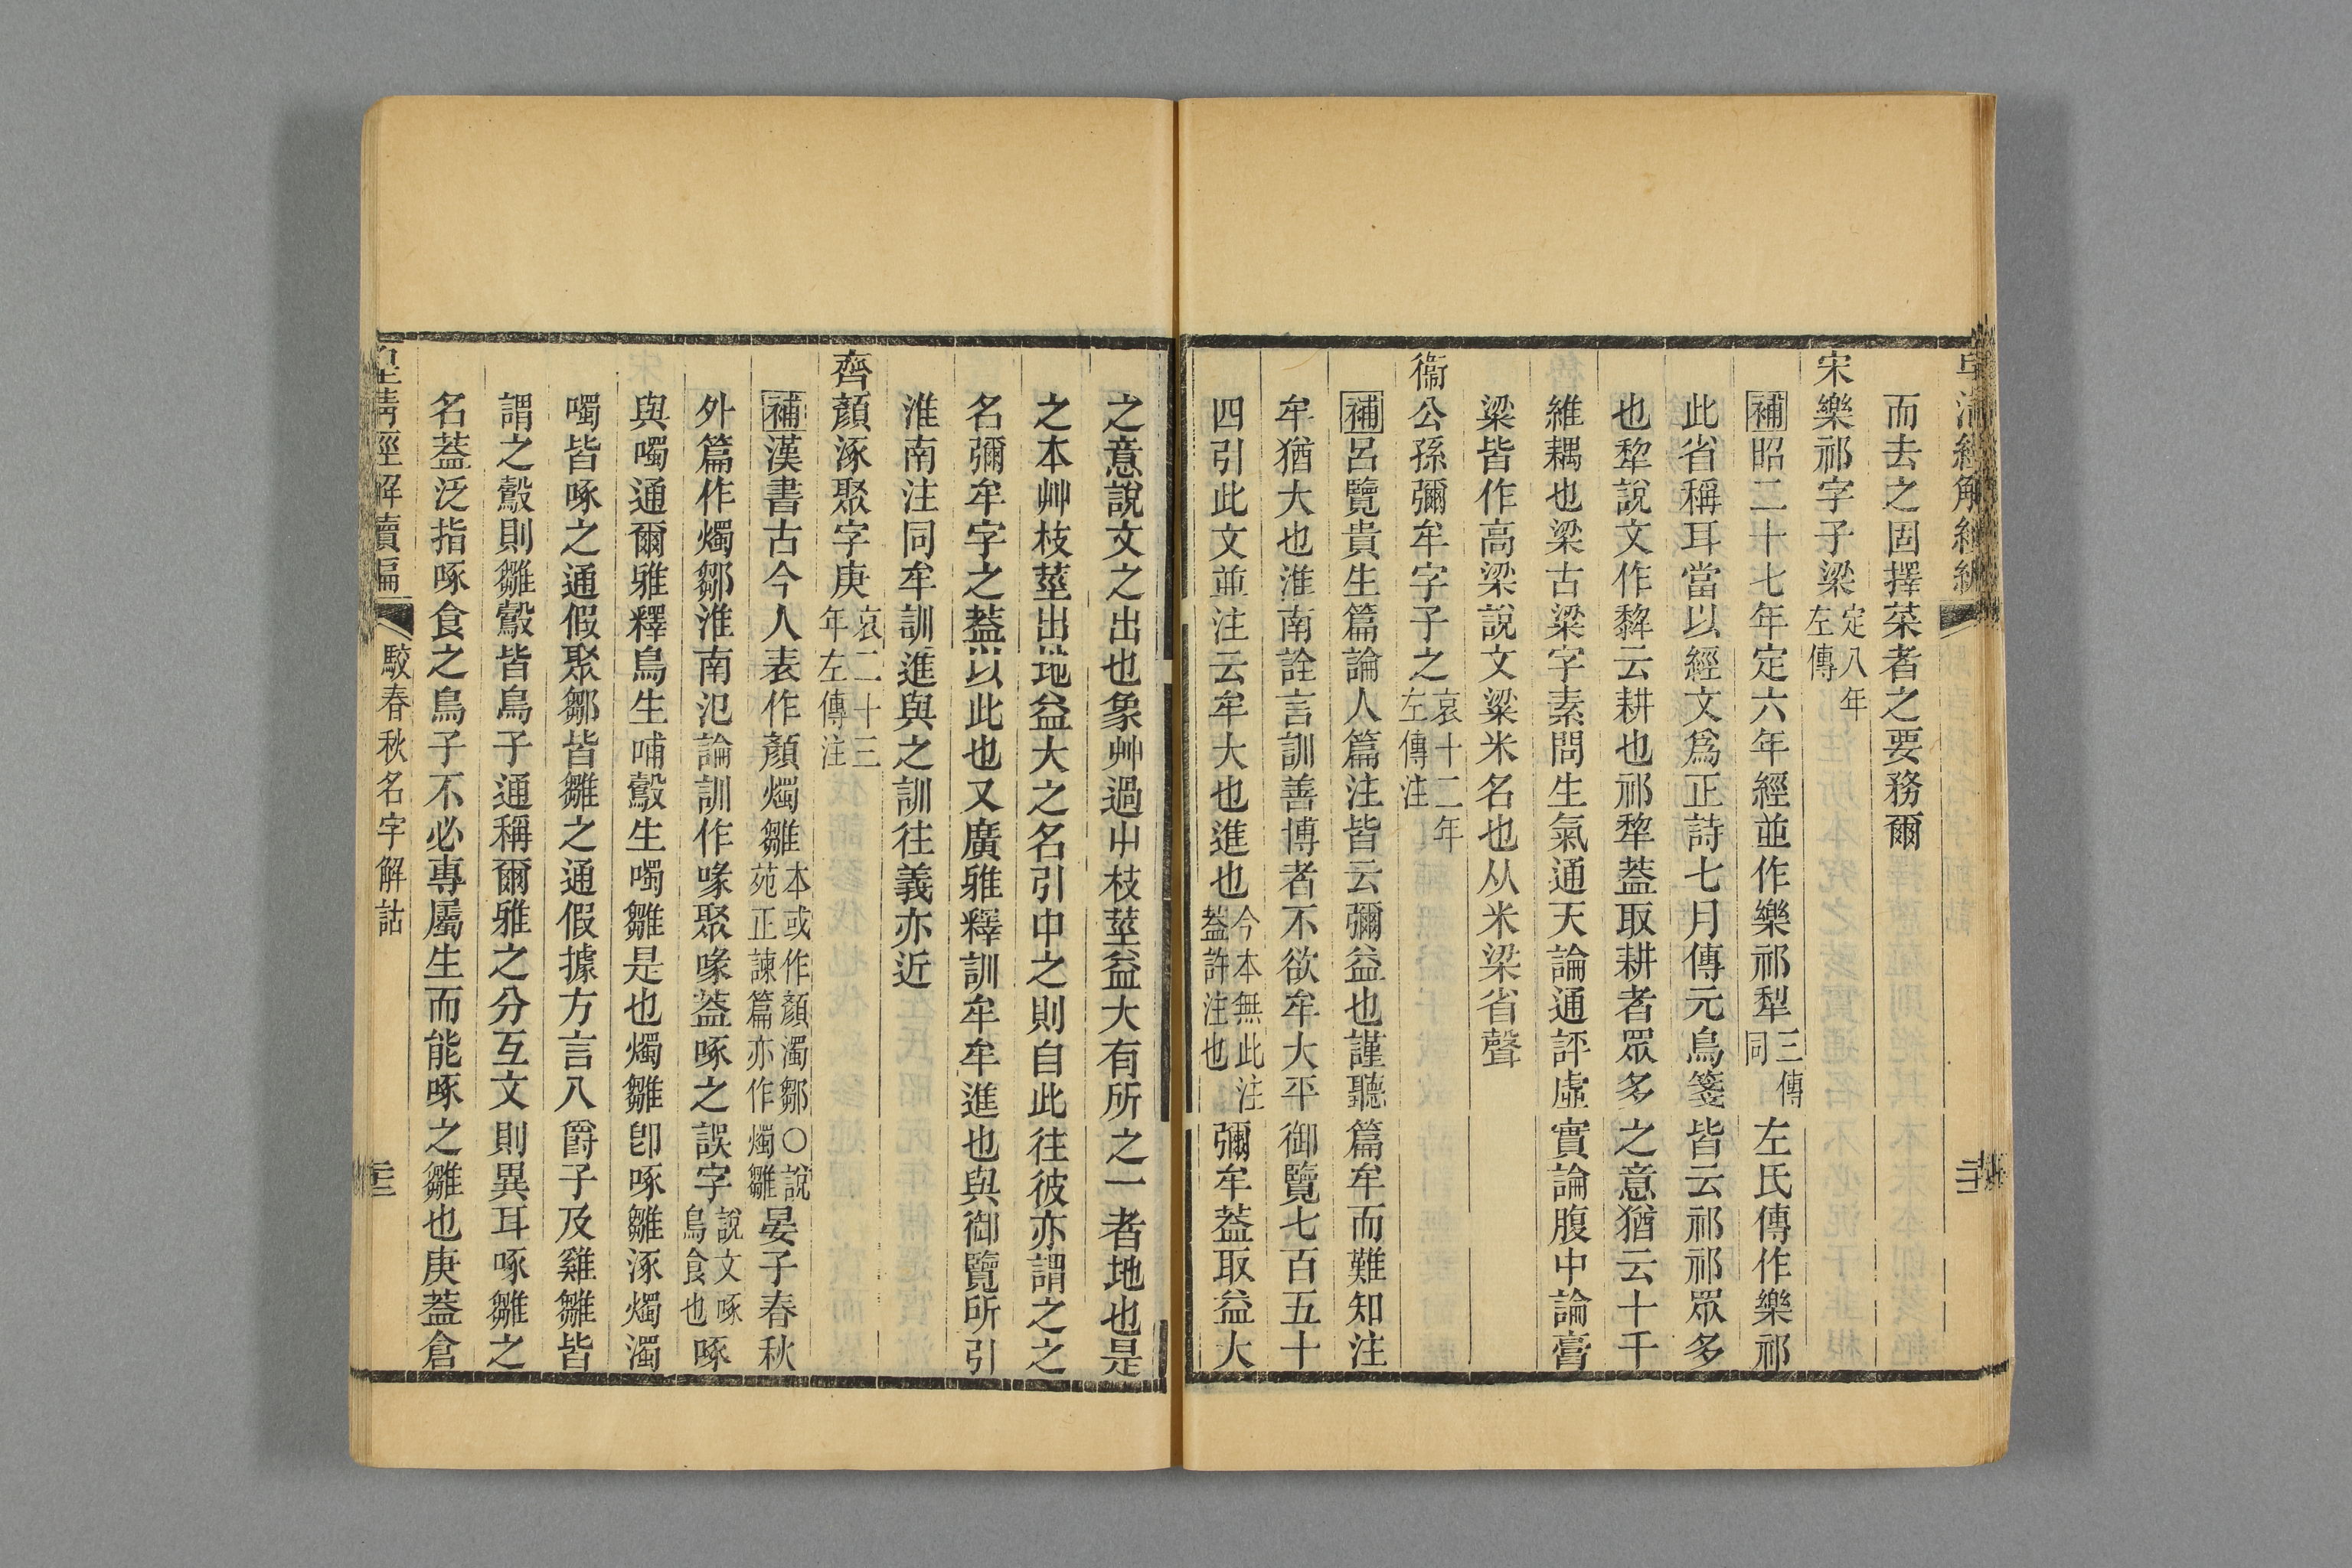 而去之固擇菜者之要務爾
宋樂祁字子梁定八年左傳
補昭二十七年定六年經並作樂祁犁三傳同左氏傳作樂祁
此省稱耳當以經文爲正詩七月傳元鳥箋皆云祁祁眾多
也犂說文作𤛿云耕也祁犂蓋取耕者眾多之意猶云十千
維耦也梁古粱字素問生氣通天論通評虛實論腹中論膏
粱皆作高梁說文粱米名也从米梁省聲
衞公孫彌牟字子之哀十二年左傳注
補呂覽貴生篇論人篇注皆云彌益也謹聽篇牟而難知注
牟猶大也淮南詮言訓善博者不欲牟大平御覽七百五十
四引此文並注云牟大也進也今本無此注蓋許注也彌牟蓋取益大
之意說文之出也象艸過屮枝莖益大有所之一者地也是
之本艸枝莖出地益大之名引申之則自此往彼亦謂之之
名彌牟字之蓋以此也又廣雅釋訓牟牟進也與御覽所引
淮南注同牟訓進與之訓往義亦近
齊顏涿聚字庚哀二十三年左傳注
補漢書古今人表作顏燭雛本或作顏濁鄒○說苑正諫篇亦作燭雛晏子春秋
外篇作燭鄒淮南氾論訓作喙聚喙蓋啄之誤字說文啄鳥食也啄
與噣通爾雅釋鳥生哺鷇生噣雛是也燭雛卽啄雛涿燭濁
噣皆啄之通假聚鄒皆雛之通假據方言八爵子及雞雛皆
謂之鷇則雛鷇皆鳥子通稱爾雅之分互文則異耳啄雛之
名蓋泛指啄食之鳥子不必專屬生而能啄之雛也庚蓋倉
皇清經解續編
駮春秋名字解詁